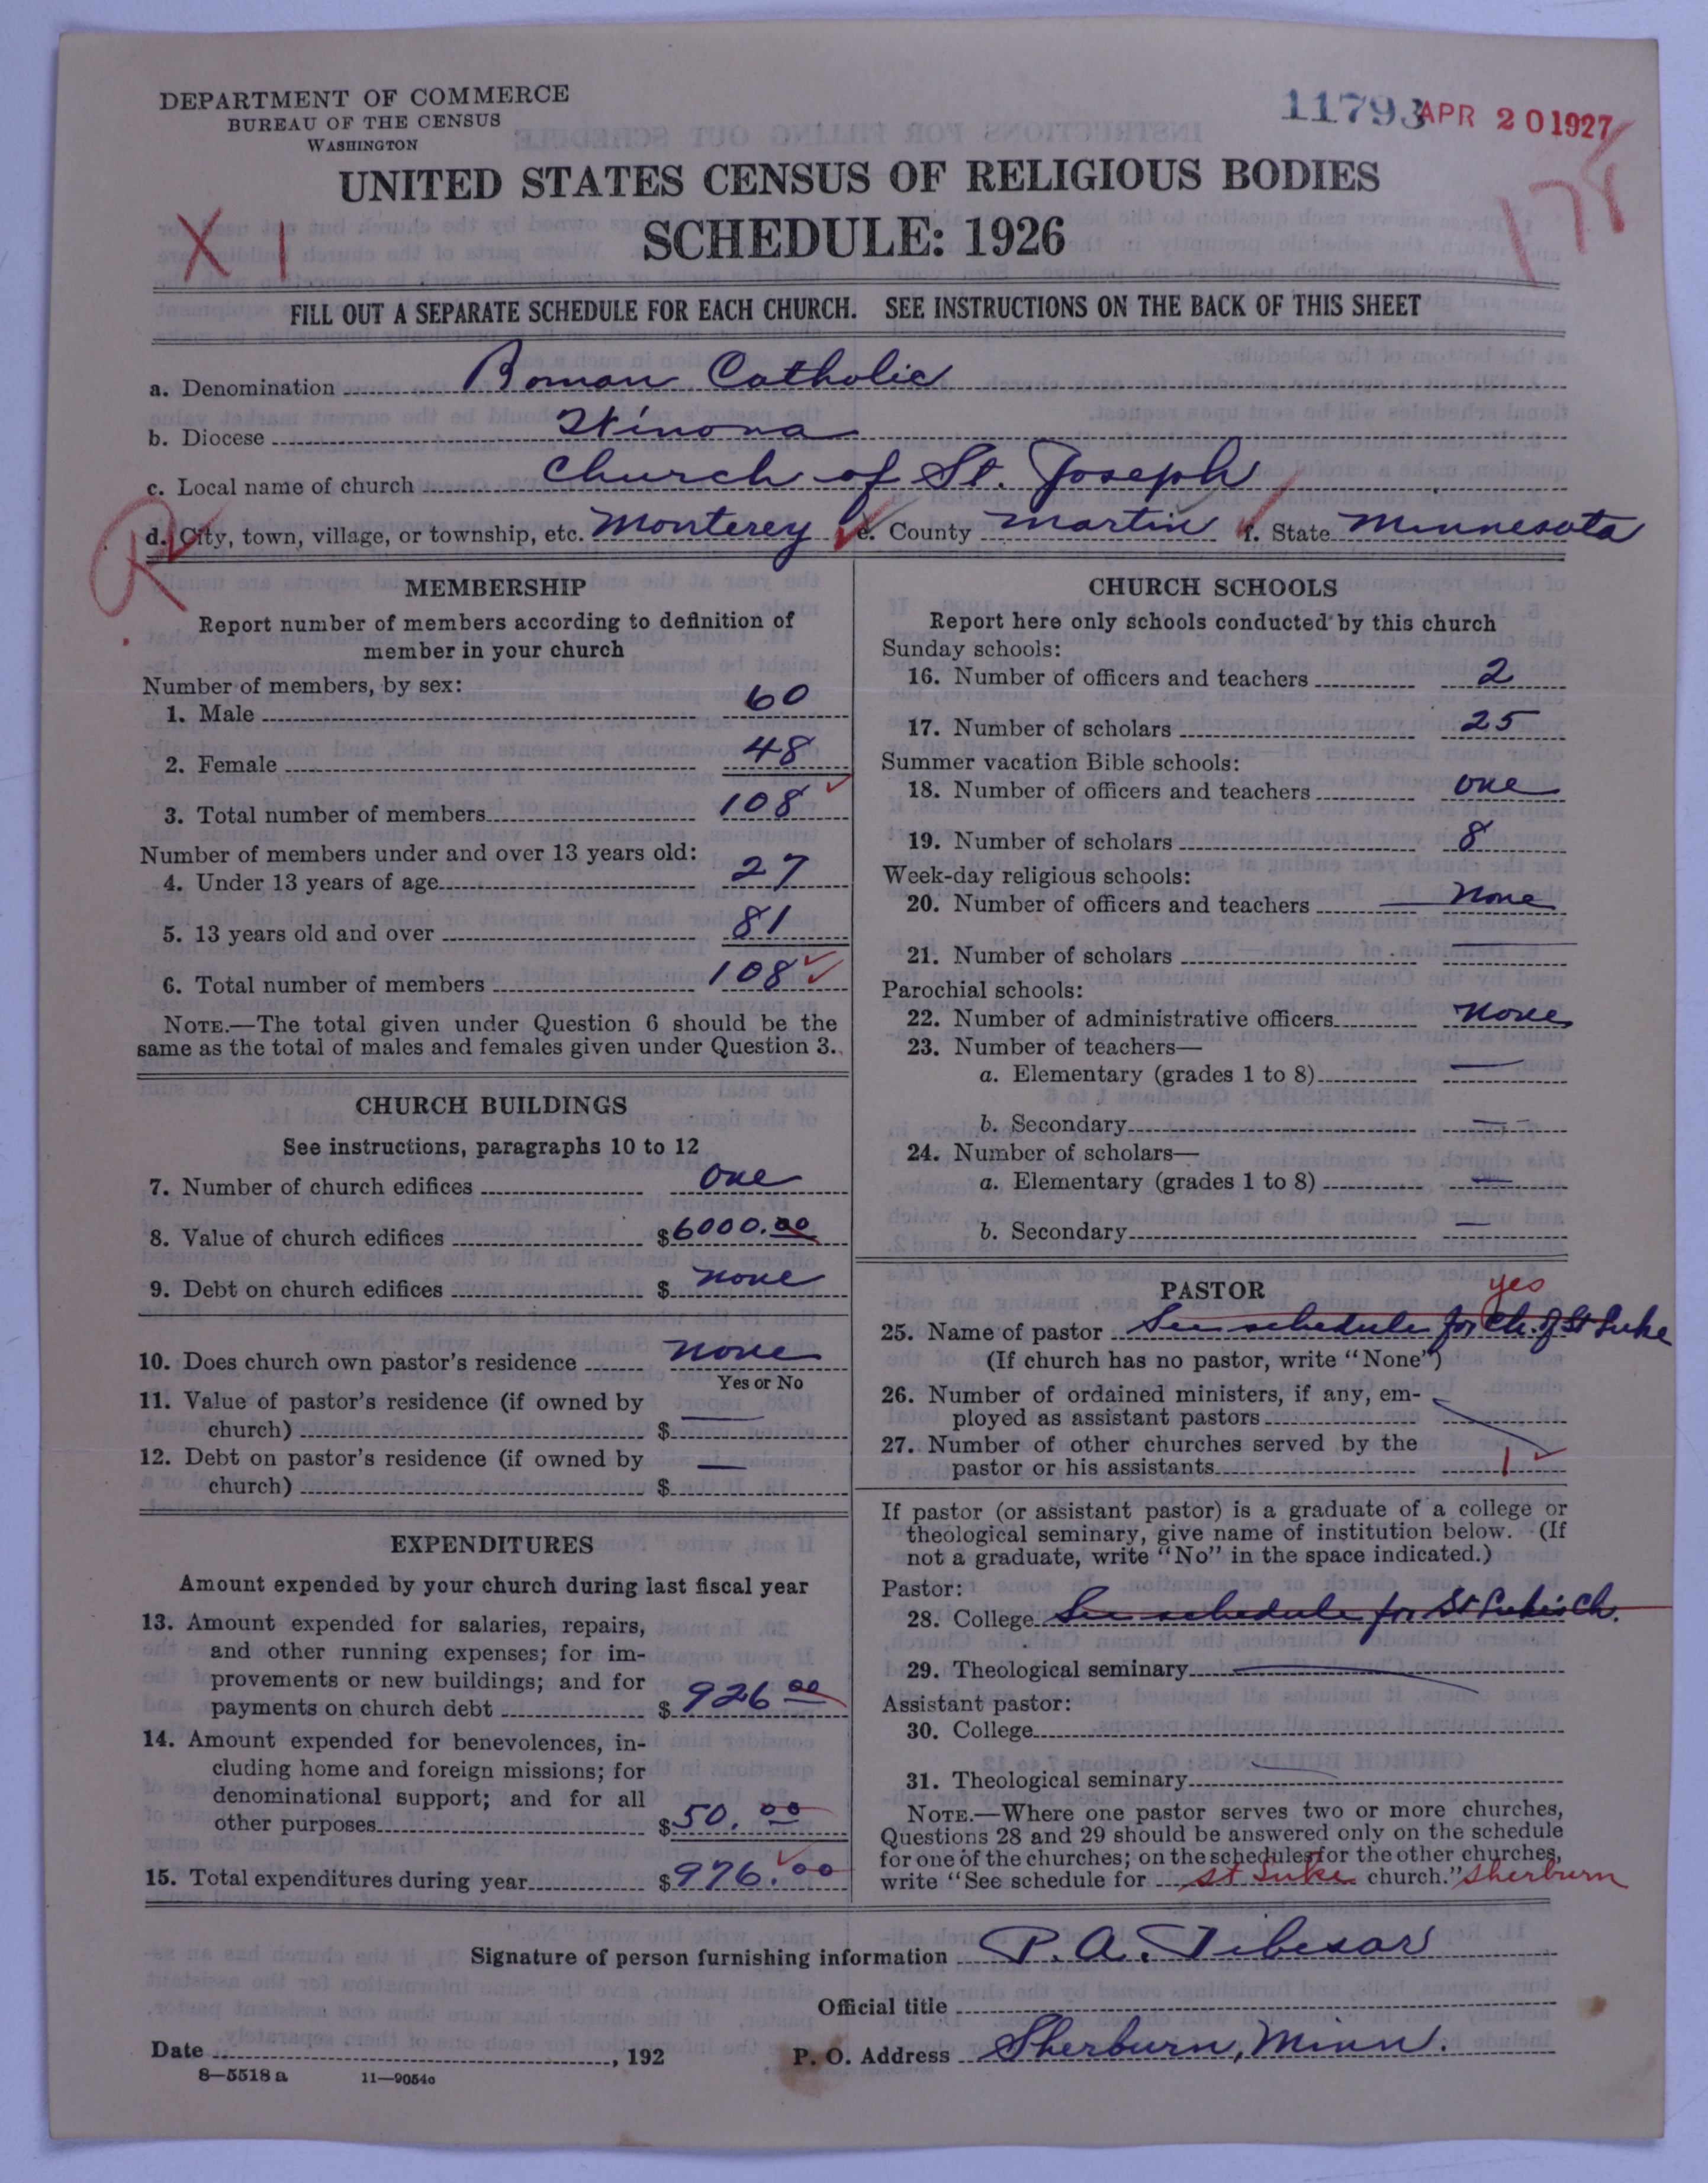 DEPARTMENT OF COMMERCE
BUREAU OF THE CENSUS
WASHINGTON
11793 APR 20 1927
UNITED STATES CENSUS OF RELIGIOUS BODIES
SCHEDULE: 1926
X 1
178
FILL OUT A SEPARATE SCHEDULE FOR EACH CHURCH. SEE INSTRUCTIONS ON THE BACK OF THIS SHEET
a. Denomination Roman Catholic
b. Diocese Winona
c. Local name of church Church of St. Joseph
d. City, town, village, or township, etc. Monterey e. County Martin f. State Minnesota
MEMBERSHIP
Report number of members according to definition of
member in your church
Number of members, by sex:
1. Male 60
2. Female 48
3. Total number of members 108
Number of members under and over 13 years old:
4. Under 13 years of age 27
5. 13 years old and over 81
6. Total number of members 108
NOTE.—The total given under Question 6 should be the
same as the total of males and females given under Question 3.
CHURCH BUILDINGS
See instructions, paragraphs 10 to 12
7. Number of church edifices one
8. Value of church edifices $6000.00
9. Debt on church edifices $ none
10. Does church own pastor's residence none
Yes or No
11. Value of pastor's residence (if owned by
church) $ —
12. Debt on pastor's residence (if owned by
church) $ —
EXPENDITURES
Amount expended by your church during last fiscal year
13. Amount expended for salaries, repairs,
and other running expenses; for im-
provements or new buildings; and for
payments on church debt $ 926 00
14. Amount expended for benevolences, in-
cluding home and foreign missions; for
denominational support; and for all
other purposes $50.00
15. Total expenditures during year $976.00
CHURCH SCHOOLS
Report here only schools conducted by this church
Sunday schools:
16. Number of officers and teachers 2
17. Number of scholars 25
Summer vacation Bible schools:
18. Number of officers and teachers one
19. Number of scholars 8
Week-day religious schools:
20. Number of officers and teachers None
21. Number of scholars —
Parochial schools:
22. Number of administrative officers None
23. Number of teachers—
a. Elementary (grades 1 to 8) —
b. Secondary —
24. Number of scholars—
a. Elementary (grades 1 to 8) —
b. Secondary —
PASTOR
yes
25. Name of pastor See schedule for Ch. of St Luke
(If church has no pastor, write "None")
26. Number of ordained ministers, if any, em-
ployed as assistant pastors
27. Number of other churches served by the
pastor or his assistants 1
If pastor (or assistant pastor) is a graduate of a college or
theological seminary, give name of institution below. (If
not a graduate, write "No" in the space indicated.)
Pastor:
28. College See schedule for St Luke's Ch.
29. Theological seminary
Assistant pastor:
30. College
31. Theological seminary
NOTE.—Where one pastor serves two or more churches,
Questions 28 and 29 should be answered only on the schedule
for one of the churches; on the schedules for the other churches,
write "See schedule for St Luke church." Sherburn
Signature of person furnishing information P. A. Tibesar
Official title
Date , 192 P. O. Address Sherburn, Minn.
8—5518 a 11—9054c